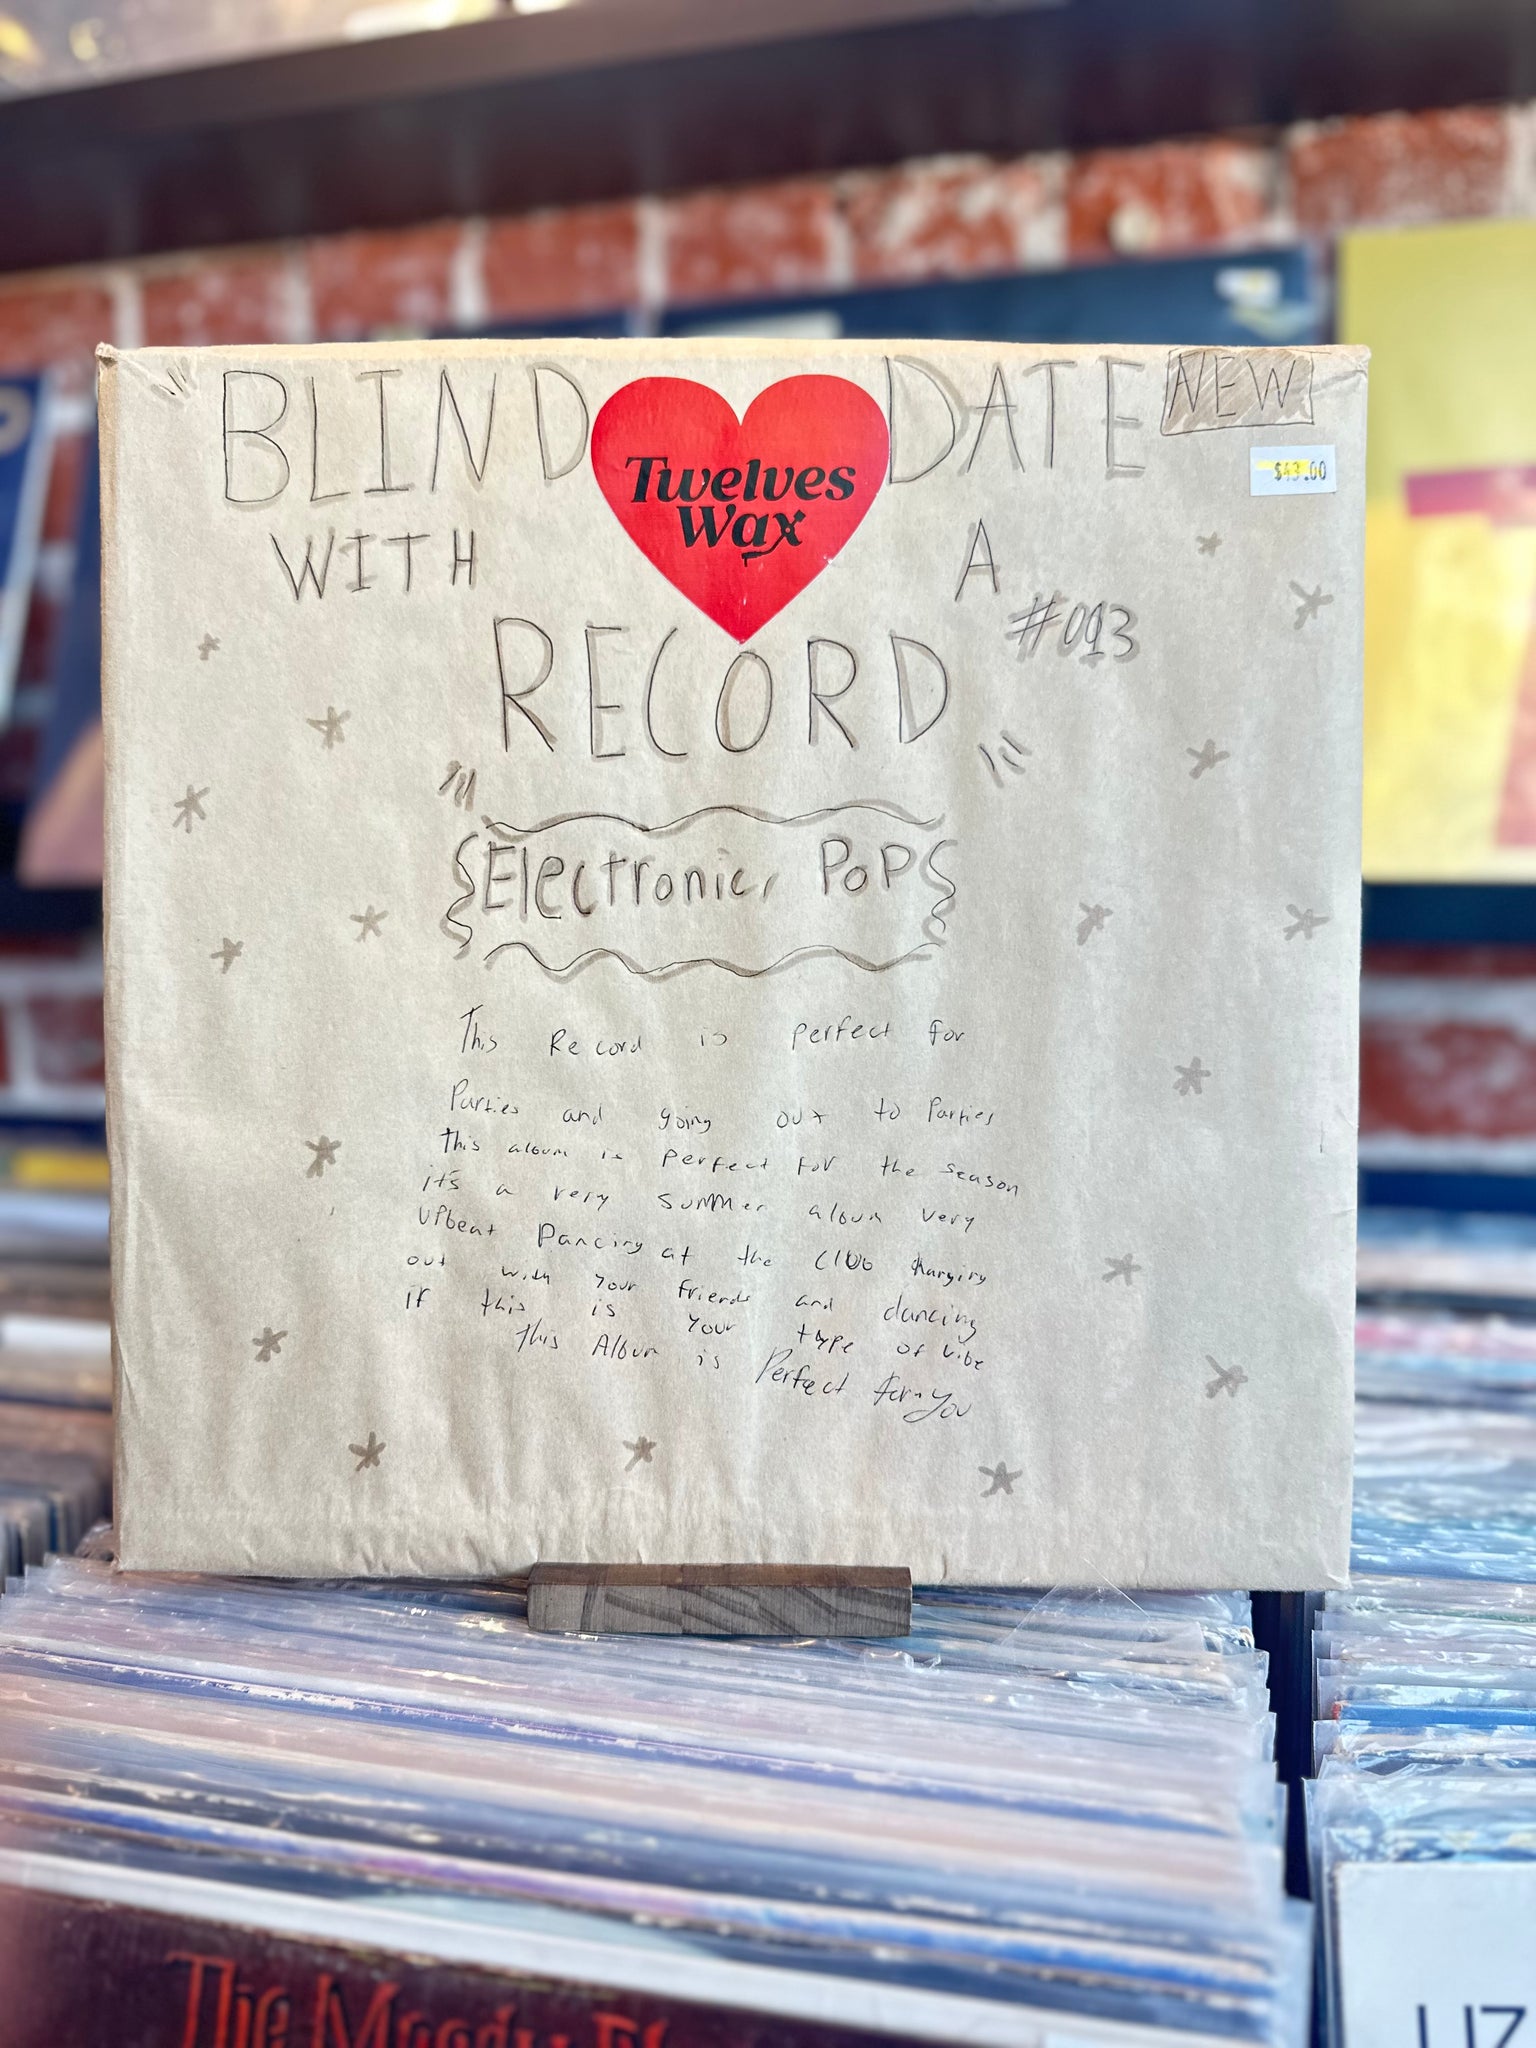 BLIND DATE
NEW
Twelves
Wax
$43.00
WITH A
#013
RECORD
Electronic, Pop
This Record is perfect for
Parties and going out to Parties
This album is perfect for the season
it's a very summer album very
upbeat Dancing at the Club hanging
out with your friends and dancing
if this is your type of vibe
this Album is Perfect for you
The Moody
LIZ